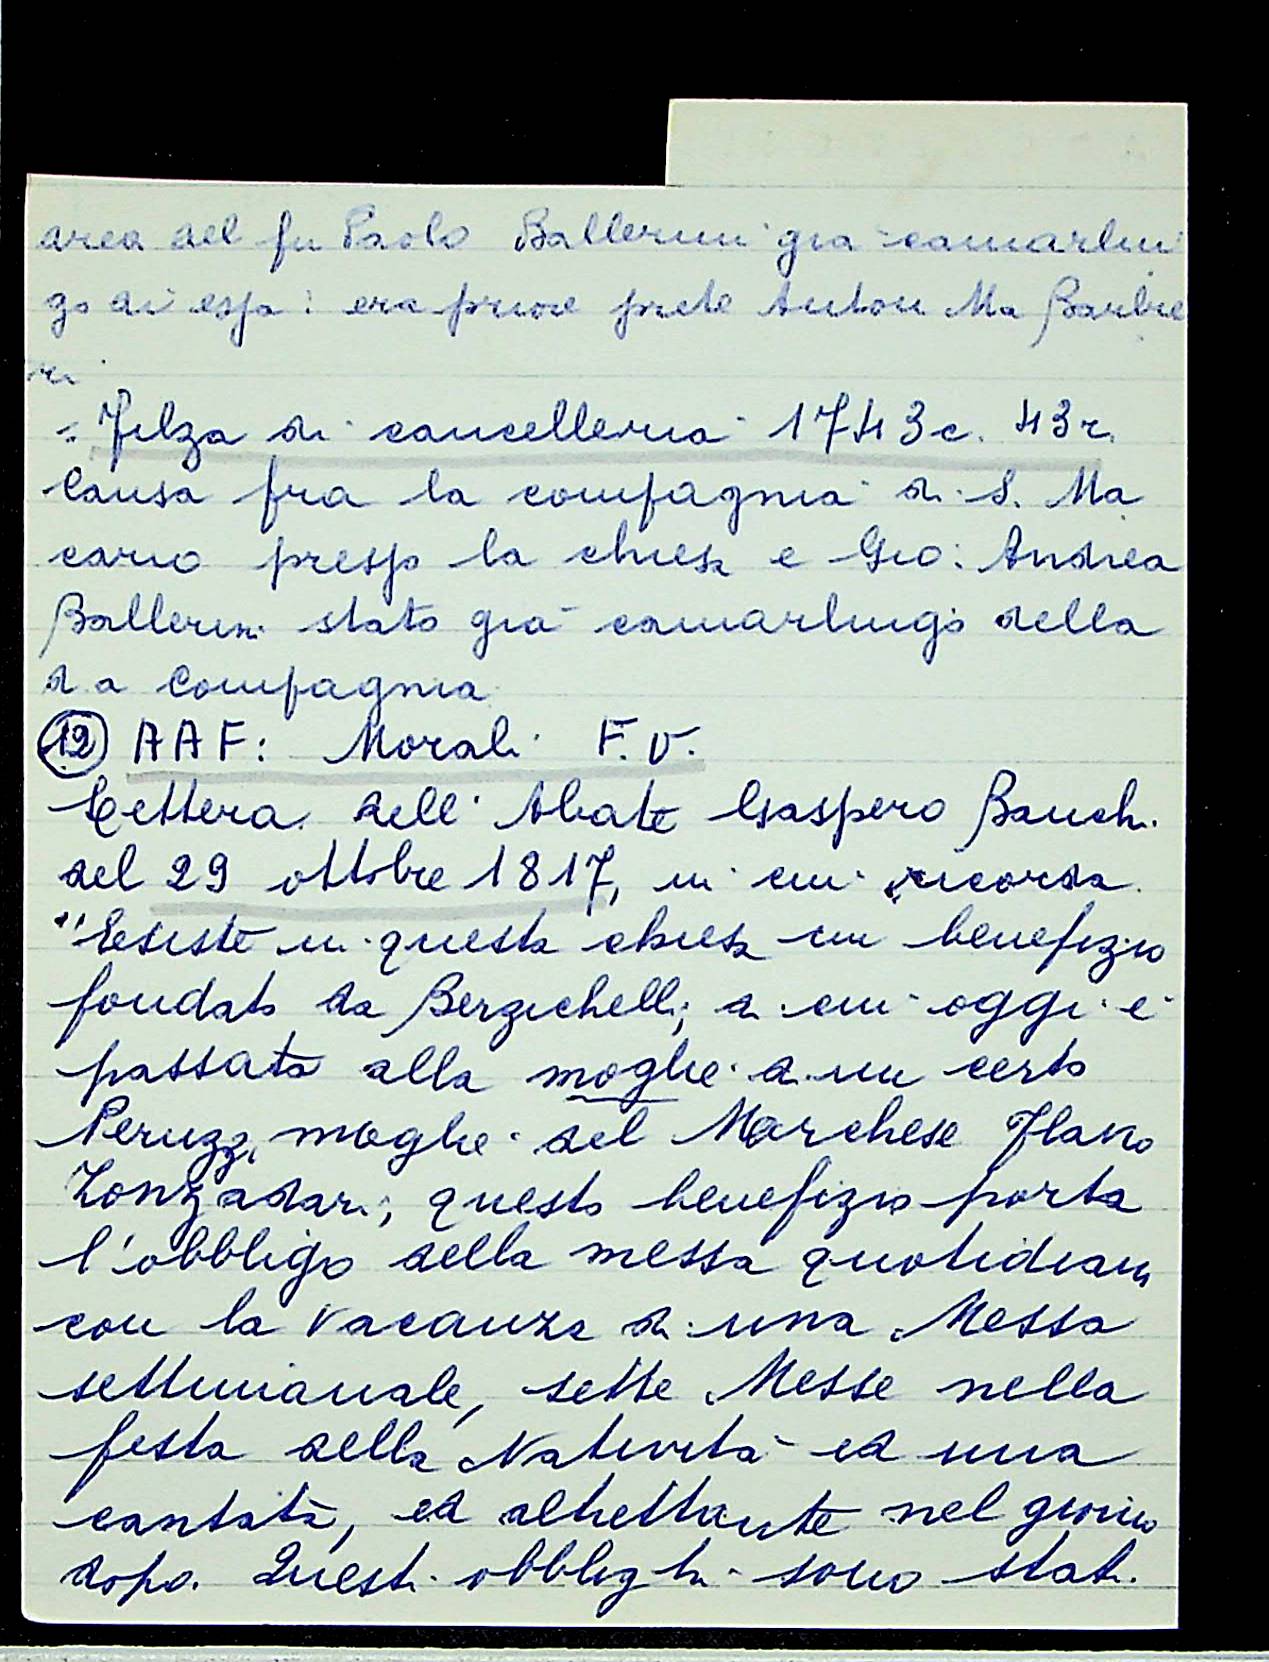 area del fu Paolo Ballerini già camarlin
go di essa: era priore prete Anton Ma Barbie
ri
= Filza di cancelleria 1743 c. 43r.
Causa fra la compagnia di S. Ma
cario presso la chiesa e Gio: Andrea
Ballerini stato già camarlingo della
da Compagnia
(12) AAF: Morali F.V.
Lettera dell'Abate Gaspero Bianchi
del 29 ottobre 1817, in cui ricorda
"Esiste in questa chiesa un benefizio
fondato da Berzichelli; a cui oggi è
passata alla moglie a un certo
Peruzzi, moglie del Marchese Flavio
Zonzadari; questo benefizio porta
l'obbligo della messa quotidiana
con la vacanza di una Messa
settimanale, sette Messe nella
festa della Natività ed una
cantata, ed altrettante nel giorno
dopo. Questi obblighi sono stati